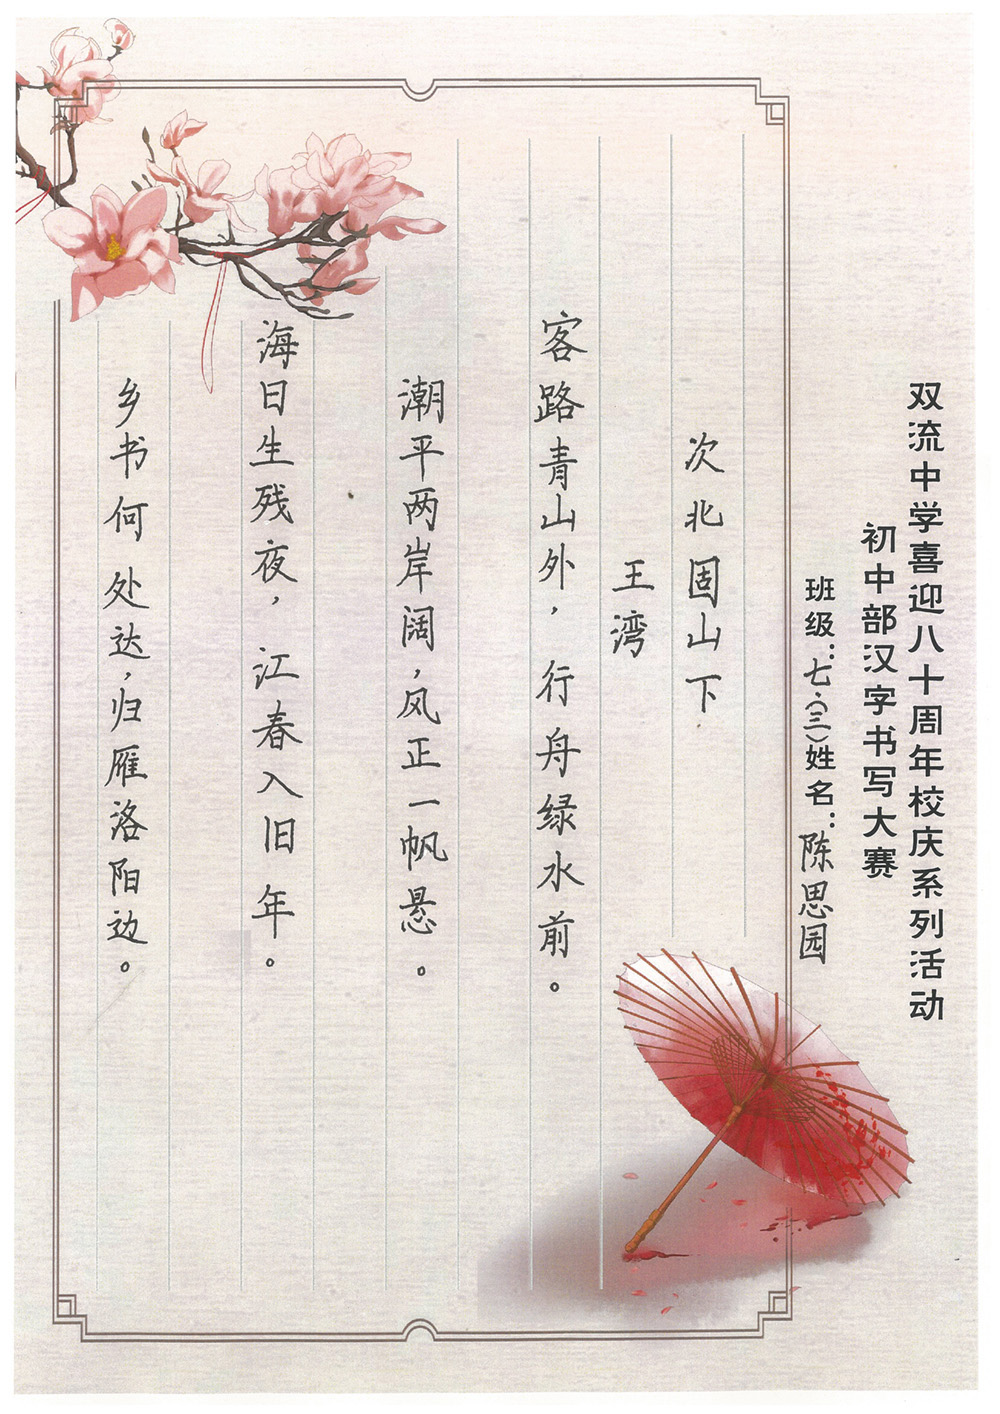 双流中学喜迎八十周年校庆系列活动
初中部汉字书写大赛
班级:七、(三)姓名:陈思园
次北固山下
王湾
客路青山外,行舟绿水前。
潮平两岸阔,风正一帆悬。
海日生残夜,江春入旧年。
乡书何处达,归雁洛阳边。